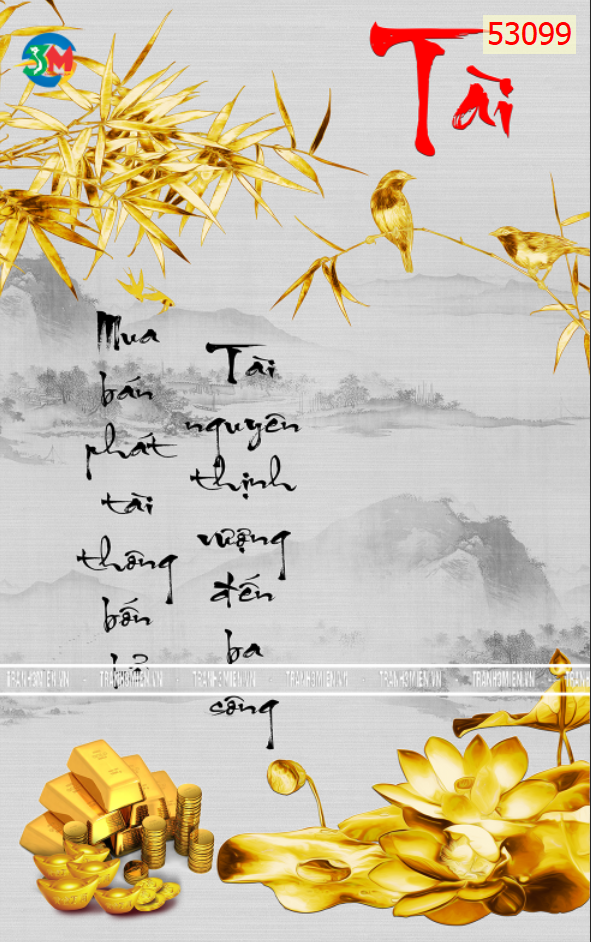 53099
3M
Tài
Mua
bán
phát
tài
thông
bốn
Tài
nguyên
thịnh
vượng
đến
ba
sông
TRANH3MIEN.VN - TRANH3MIEN.VN - TRANH3MIEN.VN - TRANH3MIEN.VN - TRANH3MIEN.VN - TRANH3MIEN.VN